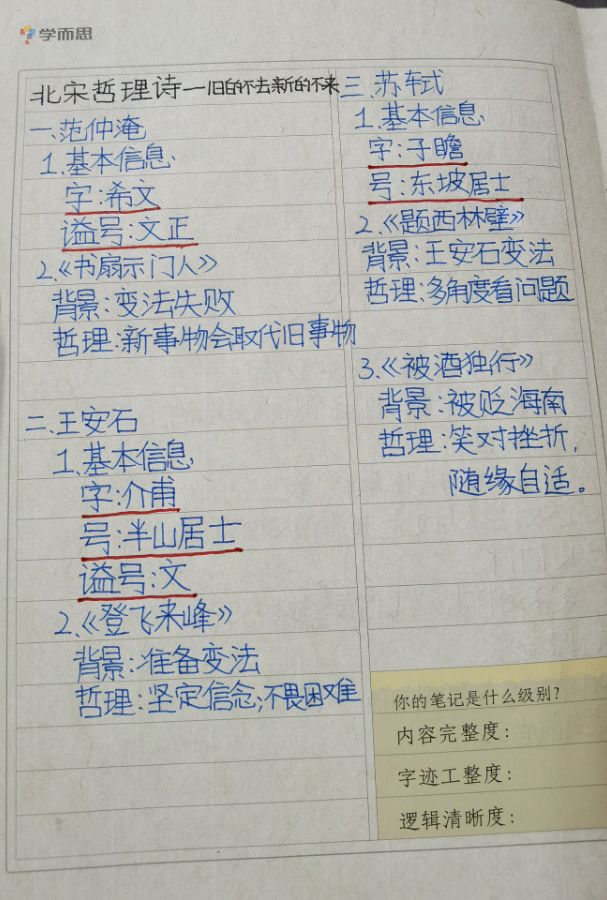 学而思
北宋哲理诗—旧的不去新的不来
一、范仲淹
1.基本信息
字:希文
谥号:文正
2.《书扇示门人》
背景:变法失败
哲理:新事物会取代旧事物
二、王安石
1.基本信息
字:介甫
号:半山居士
谥号:文
2.《登飞来峰》
背景:准备变法
哲理:坚定信念,不畏困难
三、苏轼
1.基本信息
字:子瞻
号:东坡居士
2.《题西林壁》
背景:王安石变法
哲理:多角度看问题
3.《被酒独行》
背景:被贬海南
哲理:笑对挫折,
随缘自适。
你的笔记是什么级别?
内容完整度:
字迹工整度:
逻辑清晰度: